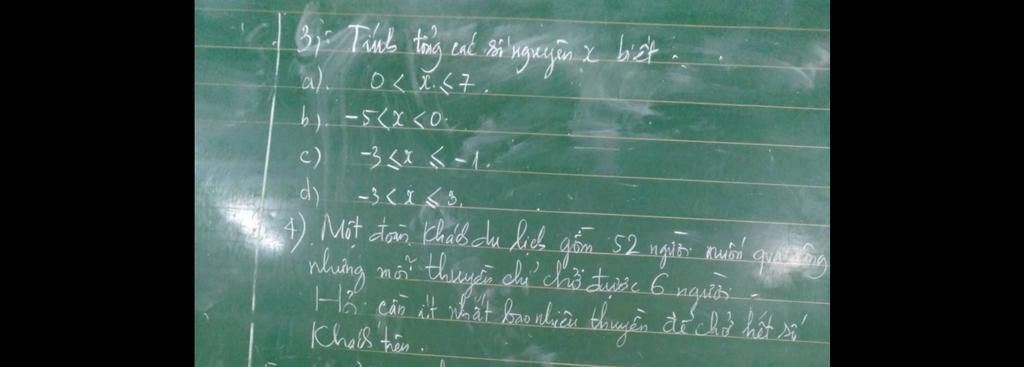 3): Tính tổng các số nguyên x biết:
a). 0 < x ≤ 7.
b). -5 < x < 0.
c) -3 ≤ x ≤ -1.
d) -3 < x ≤ 3.
4). Một đoàn khách du lịch gồm 52 người muốn qua sông
nhưng mỗi thuyền chỉ chở được 6 người.
Hỏi cần ít nhất bao nhiêu thuyền để chở hết số
khách trên.